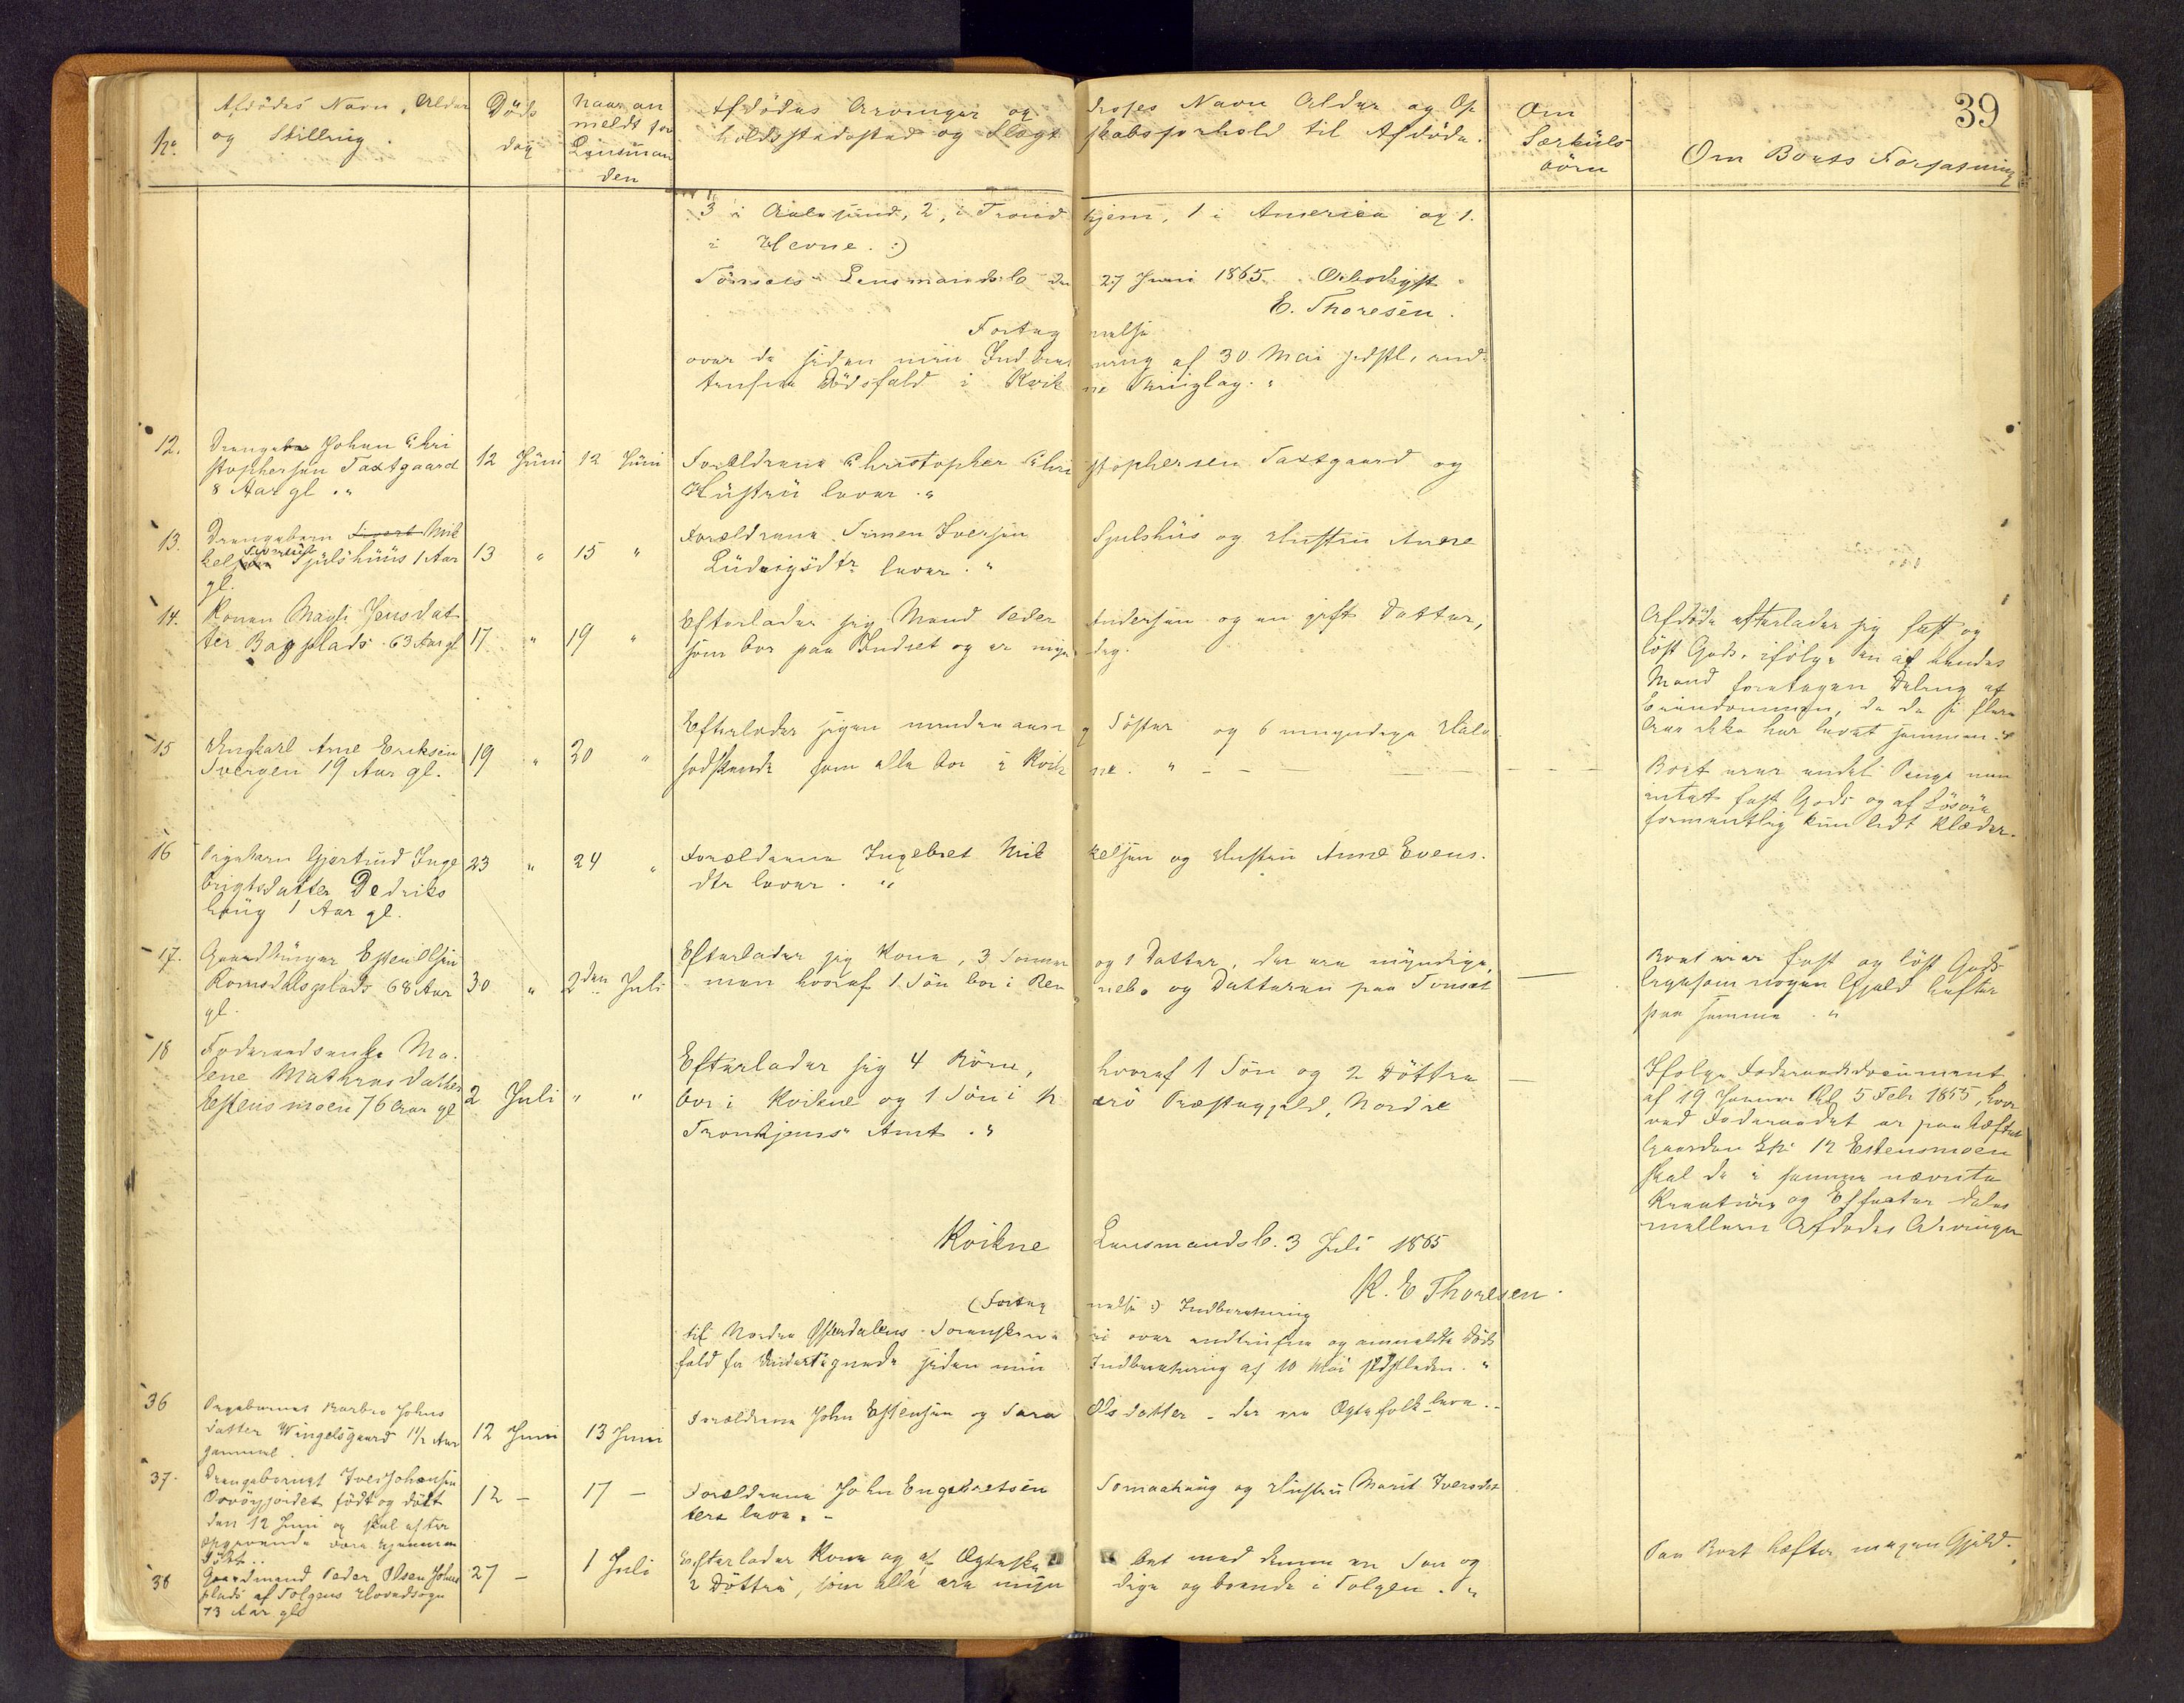 39
No.
Afdödes Navn, Alder
og Stilling.
Döds
dag
Naar an
meldt for
Lensman
den
Afdödes Arvinger og disses Navn Alder og Op
holdsstedssted og Slægt skabsforhold til Afdöde.
Om
Særkuls
börn
Om Boets Forfatning
3 i Aalesund, 2, i Trond hjem, 1 i America og 1.
i Hevne. :)
Tönsets Lensmandsb. den 27 Juni 1865. Ærbödigst
E. Thoresen.
Forteg nelse
over de siden min Indberet ning af 30 Mai sidstl. ind-
trufne Dödsfald i Kvik ne Thinglag. "
12.
Drengeba Johan Chri
stophersen Taxtgaard
8 Aar gl. "
12 Juni
12 Juni
Forældrene Christopher Chri stophersen Taxtgaard og
Hustru lever. "
13.
Drengebarn Sivert Mik
kelsen Simensen Sjulshuus 1 Aar
gl.
13 "
15 "
Forældrene Simen Iversen Sjulshus og Hustru Anne
Ludvigsdtr lever. "
14.
Konen Magli Jensdat
ter Bagplads 63 Aar gl
17 "
19 "
Efterlader sig Mand Peder Andersen og en gift Datter,
som bor paa Indset og er myn dig.
Afdöde efterlader sig fast og
löst Gods, ifölge en af hendes
Mand foretagen Deling af
Eiendommen, da de i flere
Aar ikke har levet sammen. "
15
Ungkarl Arne Eriksen
Svergen 19 Aar gl.
19 "
20 "
Efterlader sig en Söster og 6 umyndige Halv
södskende som alle bor i Kvik ne. "
Boet eier endel Penge men
intet fast Gods og af Lösöre
formentlig kun lidt Klæder.
16
Pigebarn Gjertrud Inge
brigtsdatter Dedriks
haug 1 Aar gl.
23 "
24 "
Forældrene Ingebret Mik kelsen og Hustru Anne Evens.
dtr lever. "
17.
Gaardbruger Esten Olsen
Romsdalsplads 68 Aar
gl.
30 "
2den Juli
Efterlader sig Kone, 3 Sönner og 1 Datter, der ere myndige,
men hvoraf 1 Sön bor i Ren nebo og Datteren paa Tönset
Boet eier fast og löst Gods
ligesom nogen Gjæld hefter
paa samme. "
18
Foderaadsenke Ma-
lene Mathræsdatter
Estensmoen 76 Aar gl
2 Juli
" "
Efterlader sig 4 Börn, hvoraf 1 Sön og 2 Döttre
bor i Kvikne og 1 Sön i Præstegjeld, Nordre
Trondhjems Amt. "
Ifölge Foderaadsdocument
af 19 Januar 5 Febr 1855, hvor
ved Foderaadet er paaheftet
Gaarden Estensmoen
skal de i samme nævnte
Kreaturer og Effecter deles
mellem Afdödes Arvinger
Kvikne Lensmandsb. 3 Juli 1865
K. E Thoresen.
(Forteg nelse :) Indberetning
til Nordre Österdalens Sorenskriver i over indtrufne og anmeldte Döds
fald for Undertegnede siden min Indberetning af 10 Mai sidstleden. "
36
Pigebarnet Barbro Johns
datter Wingelsgaard 1½ Aar
gammel.
12 Juni
13 Juni
Forældrene John Estensen og Sara Olsdatter - der ere Ægtefolk leve. -
37.
Drengebarnet Iver Johnsen
födt og dödt
den 12 Juni og skal efter
Opgivende være hjemme
döbt..
12 -
17 -
Forældrene John Engebretsen Tomashaug og Hustru Marit Iversdat
tere leve. -
38
Gaardmand Peder Olsen Johns
plads af Tolgens Hovedsogn
73 Aar gl
27 -
1 Juli
Efterlader Kone og af Ægteska bet med denne en Søn og
2 Döttre, som alle ere myn dige og boende i Tolgen. "
Paa Boet hefter nogen Gjæld.